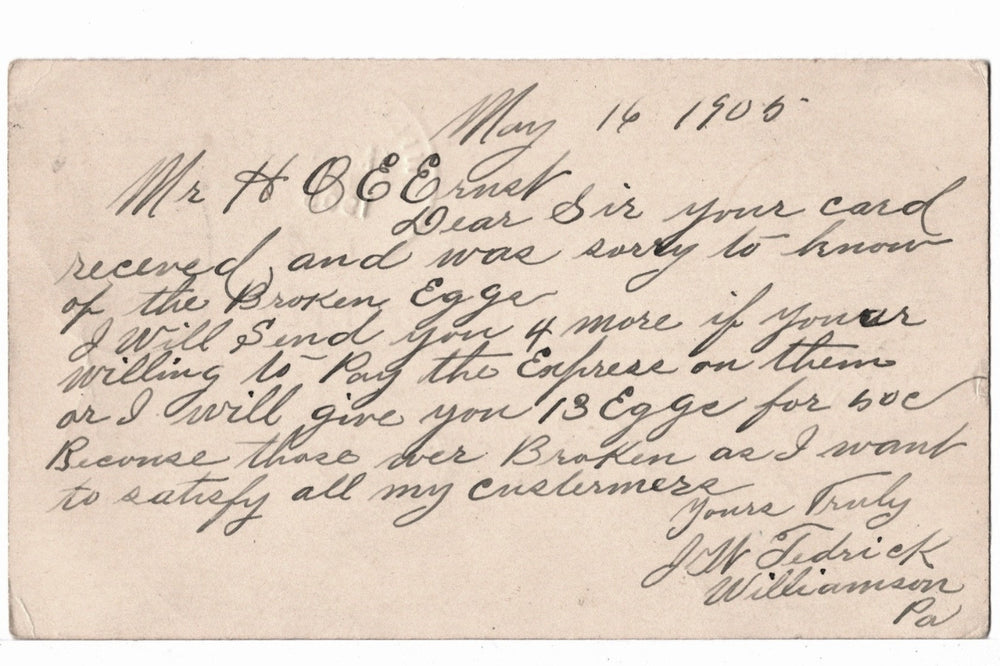 May 16 1905
Mr H O E Ernst
Dear Sir your card
receved and was sorry to know
of the Broken Eggs
I Will Send you 4 more if youer
willing to Pay the Express on them
or I will give you 13 Eggs for 50c
Beconse those wer Broken as I want
to satisfy all my custermers
Yours Truly
J W Tedrick
Williamson
Pa